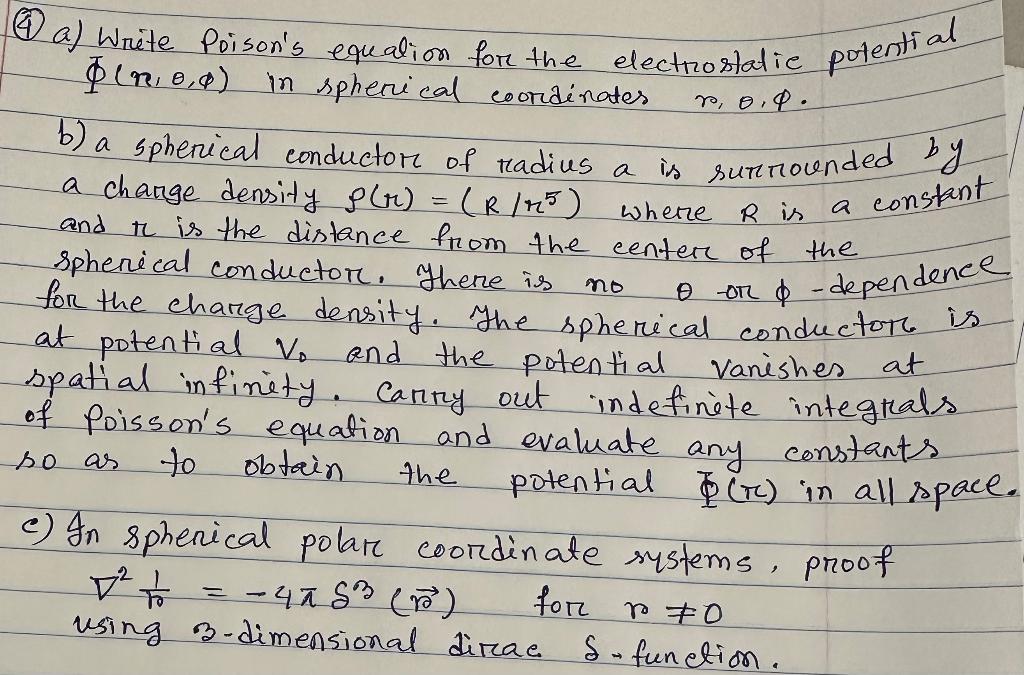 ④ a) Write Poison's equation for the electrostatic potential
Φ(r,θ,φ) in spherical coordinates r, θ, φ.
b) a spherical conductor of radius a is surrounded by
a charge density ρ(r) = (R/r⁵) where R is a constant
and r is the distance from the center of the
spherical conductor. There is no θ or φ-dependence
for the charge density. The spherical conductor is
at potential V₀ and the potential vanishes at
spatial infinity. Carry out indefinite integrals
of Poisson's equation and evaluate any constants
so as to obtain the potential Φ(r) in all space.
c) In spherical polar coordinate systems, proof
∇² 1/r = -4π δ³(r⃗) for r ≠ 0
using 3-dimensional dirac δ-function.